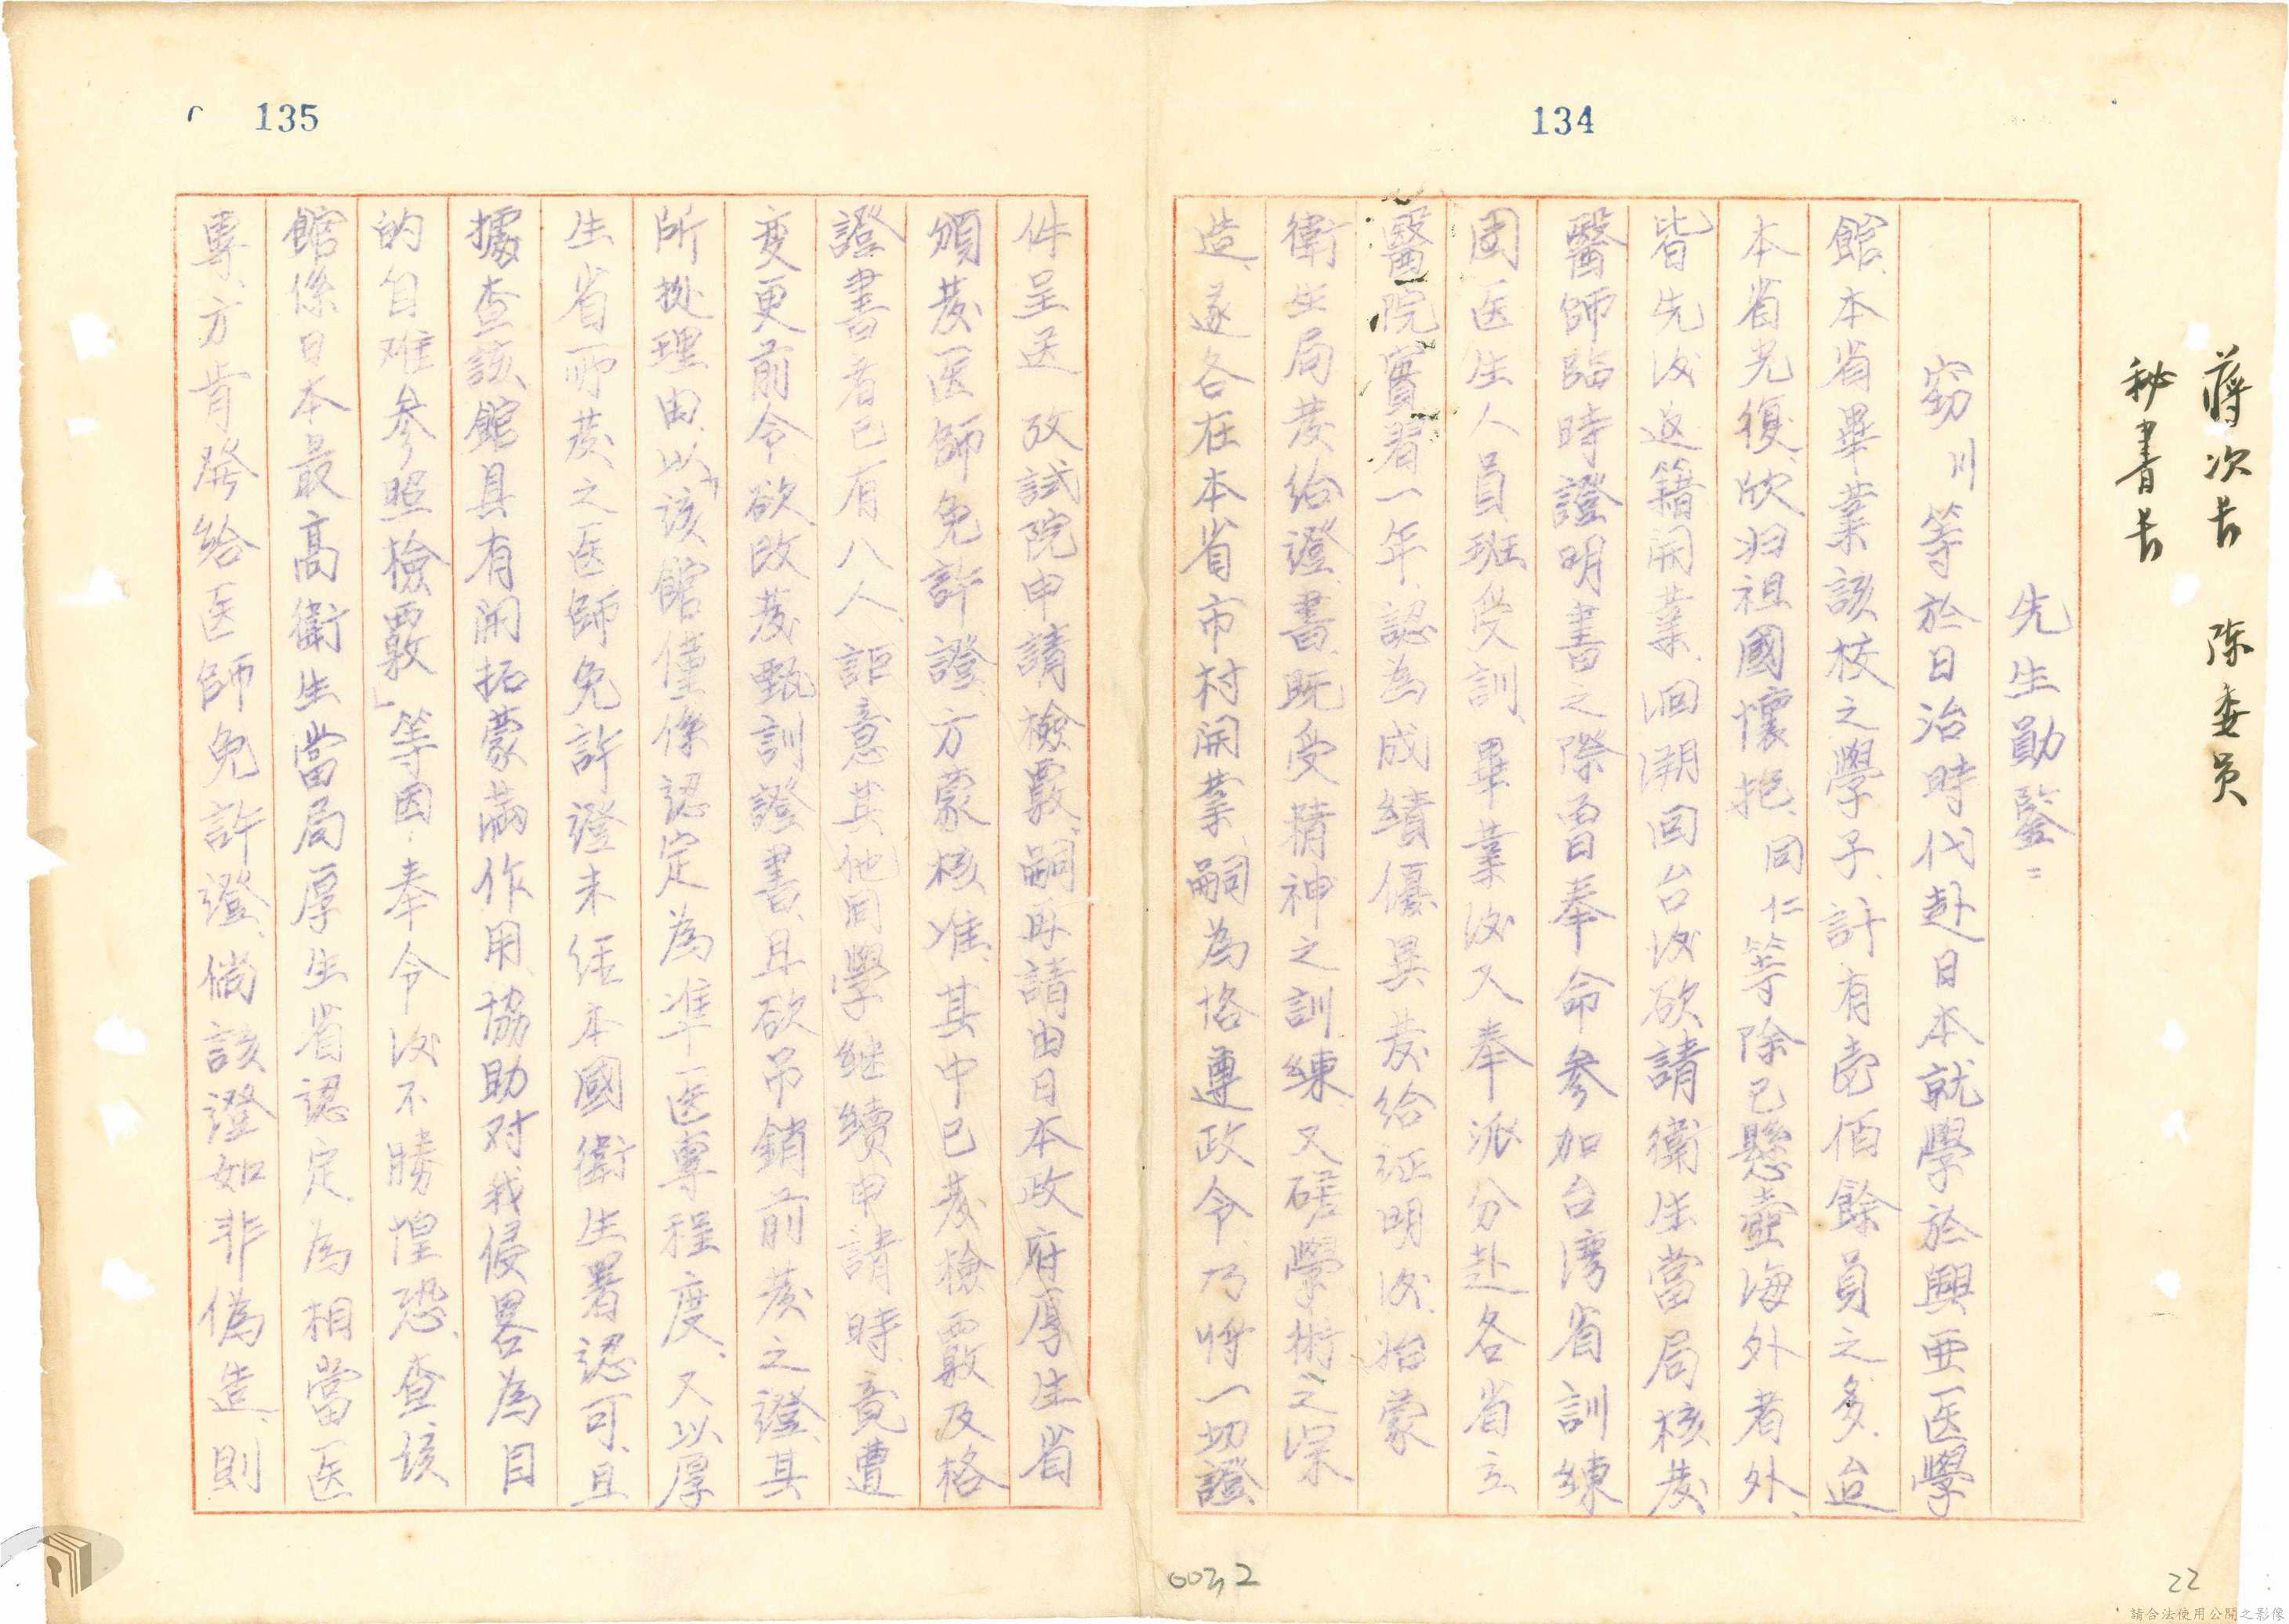 134
蔣次長　陳委員
秘書長
先生勛鑒：
竊川等於日治時代赴日本就學於興亜医學
館、本省畢業該校之學子、計有壱佰餘員之多、迨
本省光復、欣归祖國懷抱、同仁等除已懸壺海外者外、
皆先後返籍開業、洄溯回台後欲請衛生當局核发
醫師臨時證明書之際、曾奉命參加台湾省訓練
團医生人員班受訓、畢業後又奉派分赴各省立
醫院實習一年、認為成績優異发給証明後、始蒙
衛生局发給證書、既受精神之訓練、又磋學術之深
造、遂各在本省市村開業、嗣為恪遵政令、乃將一切證
0032
22
135
件呈送　攷試院申請檢覈、嗣再請由日本政府厚生省
頒发医師免許證、方蒙核准、其中已发檢覈及格
證書者已有八人、詎意其他同學継續申請時、竟遭
変更前令、欲改发甄訓證書、且欲吊銷前发之證、其
所批理由、以「該館僅係認定為準医專程度、又以厚
生省所发之医師免許證未経本國衛生署認可、且
據查該館具有開拓蒙滿作用、協助对我侵畧為目
的自难參照檢覈」等因、奉令後不勝惶恐、查该
館係日本最高衛生當局厚生省認定為相當医
專、方肯発給医師免許證、倘該證如非偽造、則
請合法使用公開之影像